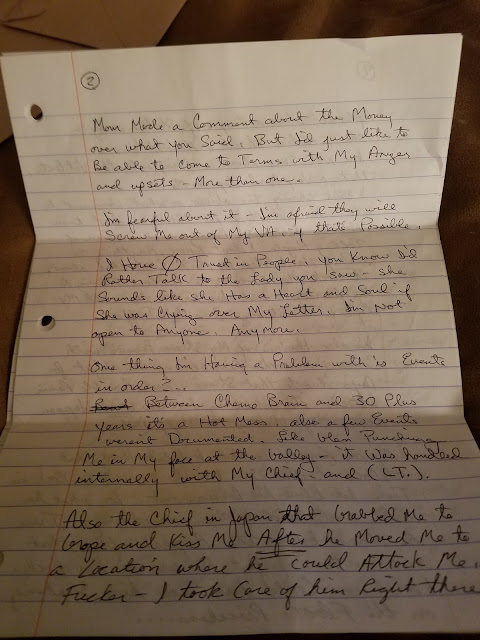 2
Mom Made a Comment about the Money
over what you Said. But I'd just like to
Be able to Come to Terms with My Anger
and upsets - More than one.
I'm fearful about it - I'm afraid they will
Screw Me out of My VA. if that's Possible.
I Have Ø Trust in People. You Know I'd
Rather Talk to the Lady you Saw - she
Sounds like she Has a Heart and Soul if
She was Crying over My Letter. I'm Not
open to Anyone. Anymore.
One thing I'm Having a Problem with is Events
in order?..
Between Chemo Brain and 30 Plus
years it's a Hot Mess. also a few Events
weren't Documented. Like Punching
Me in My face at the Valley - it was handled
internally with My Chief - and (LT.).
Also the Chief in Japan that Grabbed Me to
Grope and Kiss Me After he Moved Me to
a Location where he Could Attack Me.
Fucker - I took Care of him Right there